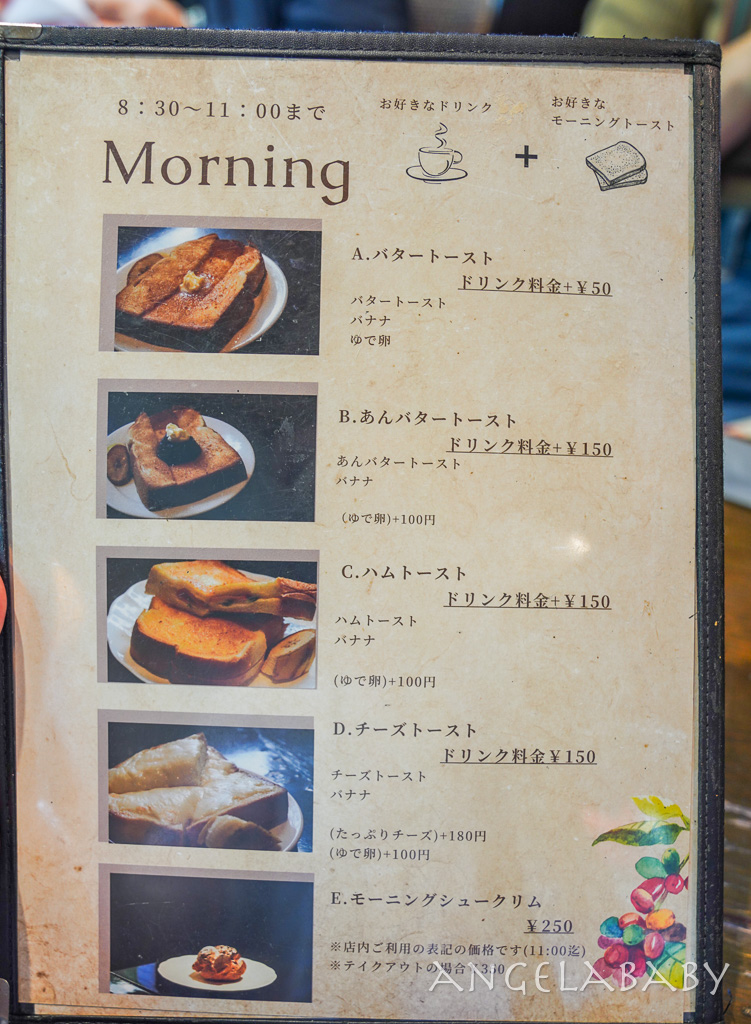 8：30～11：00まで
Morning
お好きなドリンク
+
お好きな
モーニングトースト
A.バタートースト
ドリンク料金+￥50
バタートースト
バナナ
ゆで卵
B.あんバタートースト
ドリンク料金+￥150
あんバタートースト
バナナ
（ゆで卵)+100円
C.ハムトースト
ドリンク料金+￥150
ハムトースト
バナナ
(ゆで卵)+100円
D.チーズトースト
ドリンク料金￥150
チーズトースト
バナナ
(たっぷりチーズ)+180円
(ゆで卵)+100円
E.モーニングシュークリム
￥250
※店内ご利用の表記の価格です(11:00迄)
※テイクアウトの場合￥350
ANGELABABY